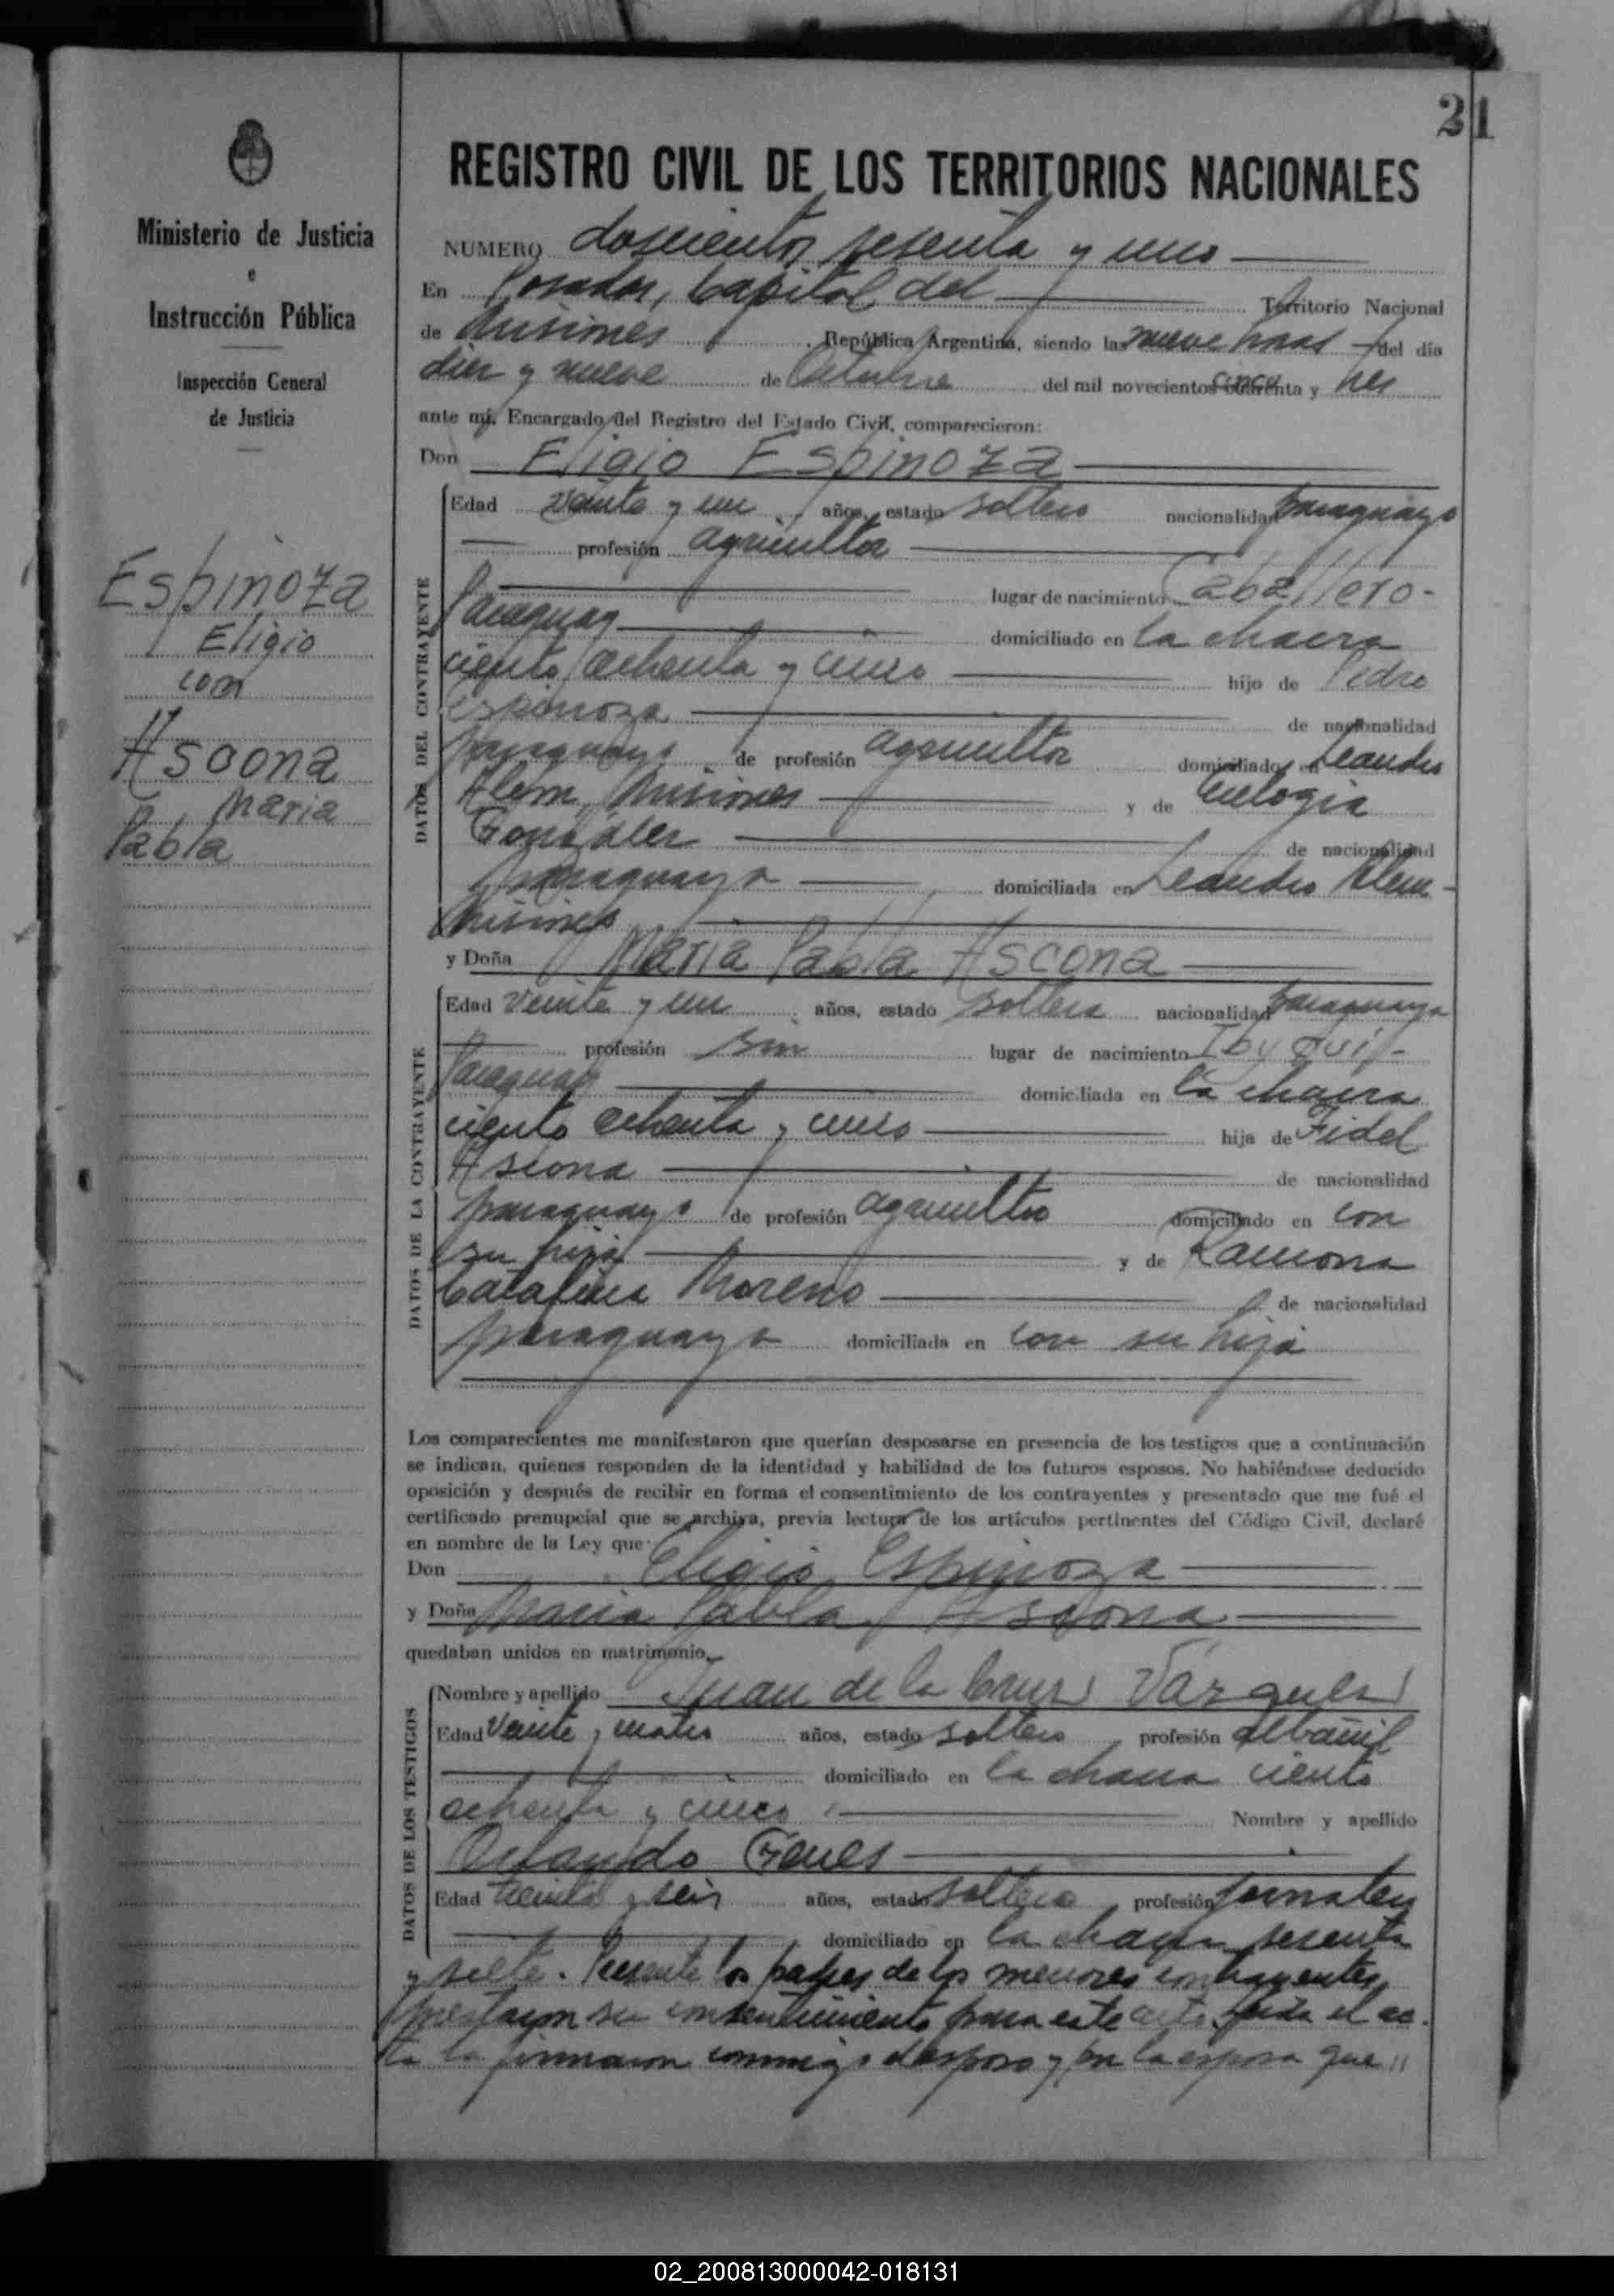 21
Ministerio de Justicia
e
Instrucción Pública
Inspección General
de Justicia
Espinoza
Eligio
con
Ascona
Maria
Pabla
REGISTRO CIVIL DE LOS TERRITORIOS NACIONALES
NUMERO doscientos sesenta y uno
En Posadas, Capital del Territorio Nacional
de Misiones, República Argentina, siendo las nueve horas del día
diez y nueve de Octubre del mil novecientos cincuenta y tres
ante mí, Encargado del Registro del Estado Civil, comparecieron:
Don Eligio Espinoza
DATOS DEL CONTRAYENTE
Edad veinte y un años, estado soltero nacionalidad paraguayo
profesión agricultor
lugar de nacimiento Caballero-
Paraguay domiciliado en la chacra
ciento ochenta y cinco hijo de Pedro
Espinoza de nacionalidad
paraguayo de profesión agricultor domiciliado en Leandro
Alem, Misiones y de Eulogia
González de nacionalidad
paraguaya domiciliada en Leandro Alem-
Misiones
y Doña Maria Pabla Ascona
DATOS DE LA CONTRAYENTE
Edad veinte y un años, estado soltera nacionalidad paraguaya
profesión sin lugar de nacimiento Ibyquí-
Paraguay domiciliada en la chacra
ciento ochenta y cinco hija de Fidel
Ascona de nacionalidad
paraguayo de profesión agricultor domiciliado en con
su hija y de Ramona
Catalina Moreno de nacionalidad
paraguaya domiciliada en con su hija
Los comparecientes me manifestaron que querían desposarse en presencia de los testigos que a continuación
se indican, quienes responden de la identidad y habilidad de los futuros esposos. No habiéndose deducido
oposición y después de recibir en forma el consentimiento de los contrayentes y presentado que me fué el
certificado prenupcial que se archiva, previa lectura de los artículos pertinentes del Código Civil, declaré
en nombre de la Ley que
Don Eligio Espinoza
y Doña Maria Pabla Ascona
quedaban unidos en matrimonio.
DATOS DE LOS TESTIGOS
Nombre y apellido Juan de la Cruz Vázquez
Edad veinte y cuatro años, estado soltero profesión albañil
domiciliado en la chacra ciento
ochenta y cinco Nombre y apellido
Orlando Genes
Edad treinta y seis años, estado soltero profesión jornalero
domiciliado en la chacra sesenta
y siete. Presente los padres de los menores contrayentes,
prestaron su consentimiento para este acto. Leída el ac-
ta la firmaron conmigo el esposo y por la esposa que //
02_200813000042-018131